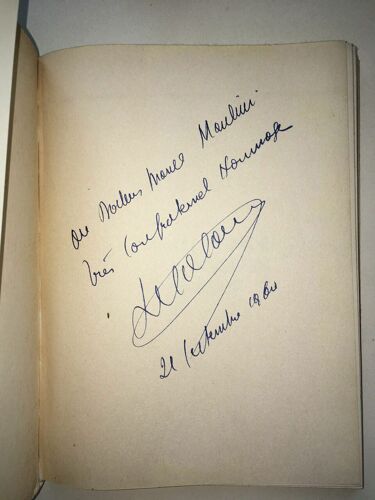 au Docteur Marcel Moulini
très Confraternel Hommage
21 Septembre 1960